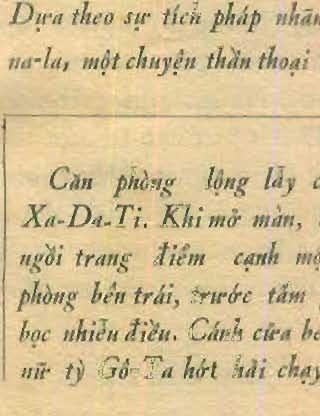 Dựa theo sự tích pháp nhãn
na-la, một chuyện thần thoại
Căn phòng lộng lẫy c
Xa-Da-Ti. Khi mở màn,
ngồi trang điểm cạnh mộ
phòng bên trái, trước tấm
bọc nhiễu điều. Cánh cửa bê
nữ tỳ Gô-Ta hớt hải chạy